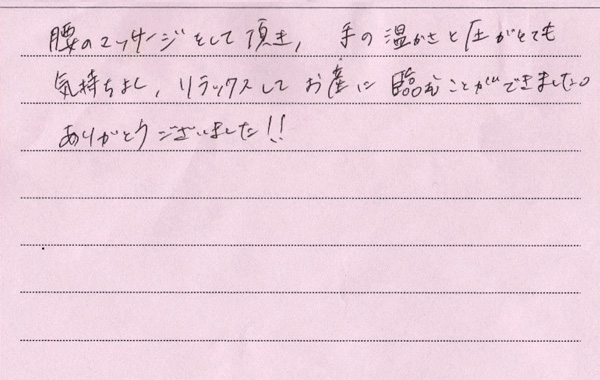 腰のマッサージをして頂き, 手の温かさと圧がとても
気持ちよし, リラックスしてお産に臨むことができました。
ありがとうございました!!